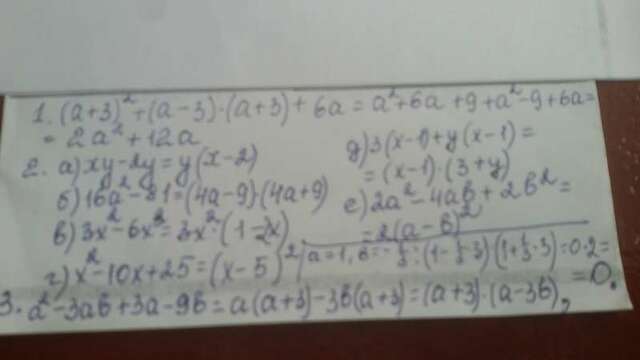 1. (a+3)² + (a-3)·(a+3) + 6a = a²+6a+9+a²-9+6a =
= 2a²+12a
2. а) xy-2y = y(x-2)
б) 16a²-81 = (4a-9)(4a+9)
в) 3x²-6x³ = 3x²·(1-2x)
г) x²-10x+25 = (x-5)²
д) 3(x-1)+y(x-1) =
= (x-1)·(3+y)
е) 2a²-4ab+2b² =
= 2(a-b)²
3. a²-3ab+3a-9b = a(a+3)-3b(a+3) = (a+3)·(a-3b),
= 0.